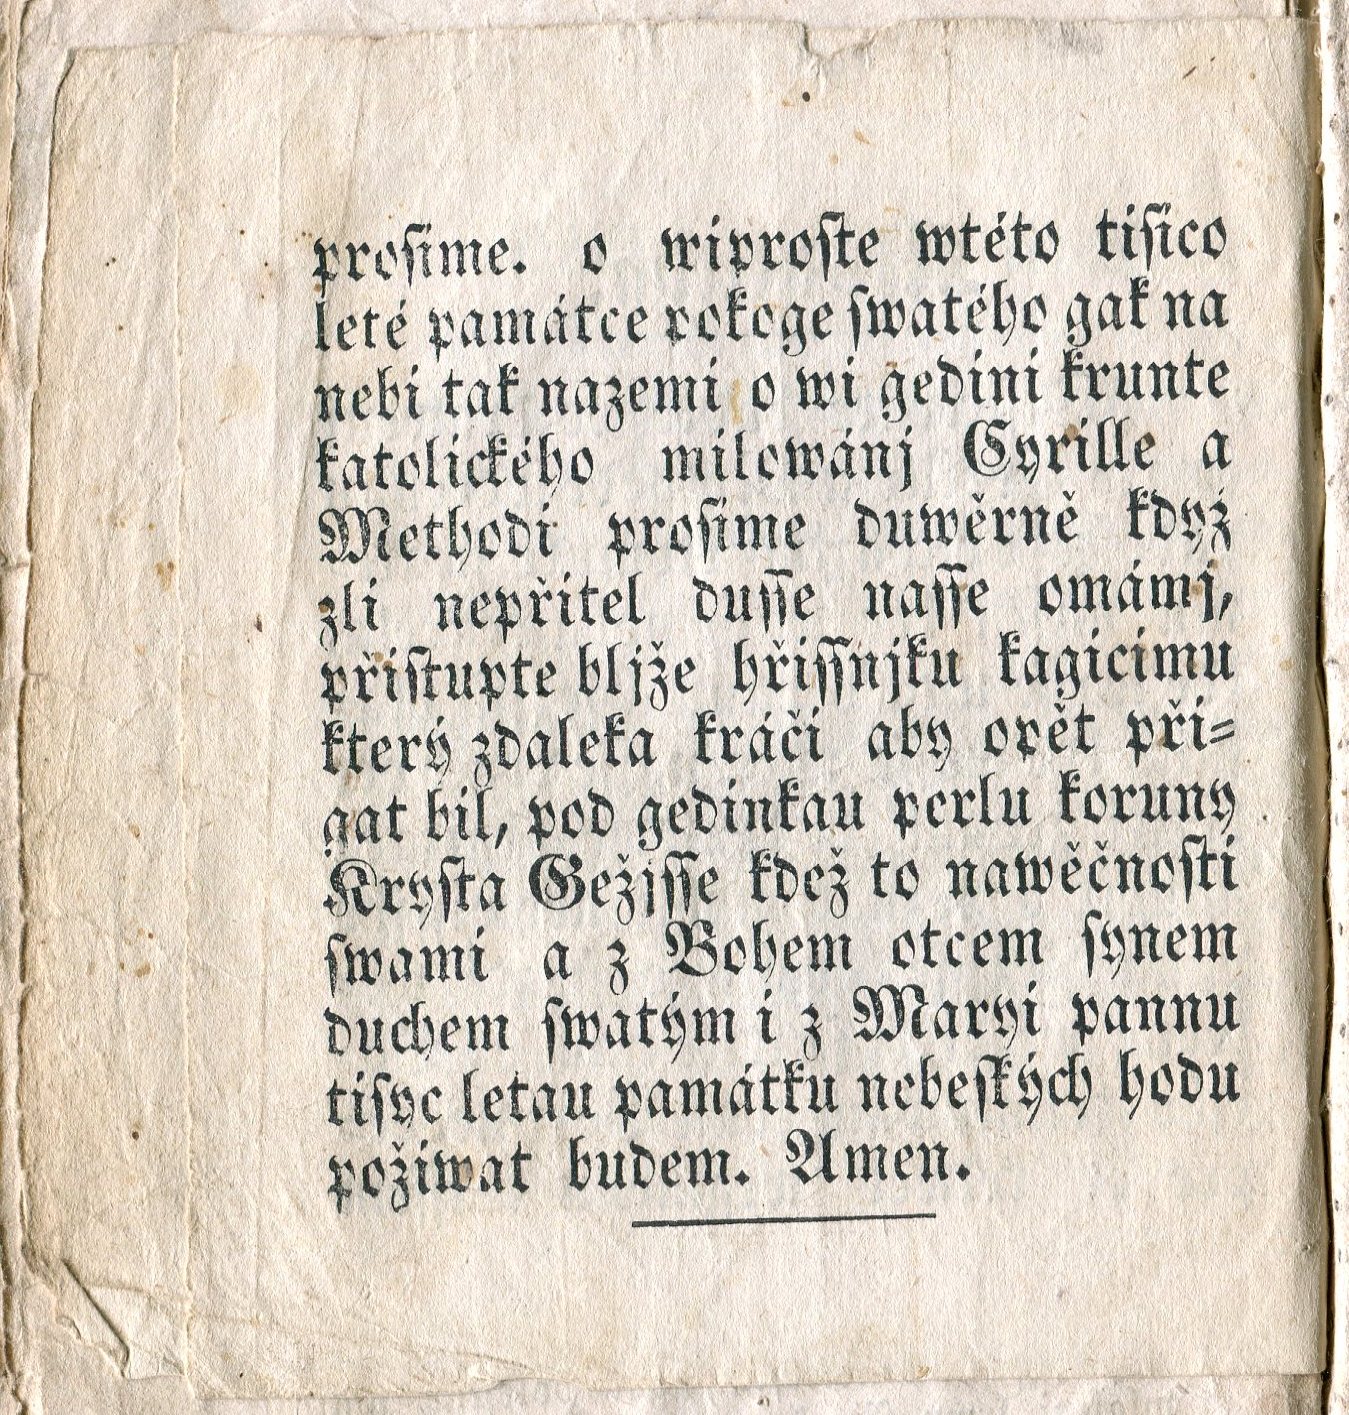 prosime. o wiproste wtéto tisico
leté památce pokoge swatého gak na
nebi tak nazemi o wi gedini krunte
katolického milowánj Cyrille a
Methodi prosime duwěrně když
zli nepřitel dusse nasse omámj,
přistupte bljže hřissnjku kagicimu
který zdaleka kráči aby opět při-
gat bil, pod gedinkau perlu koruny
Krysta Gežjsse kdež to nawěčnosti
swami a z Bohem otcem synem
duchem swatým i z Maryi pannu
tisyc letau památku nebeských hodu
požiwat budem. Amen.